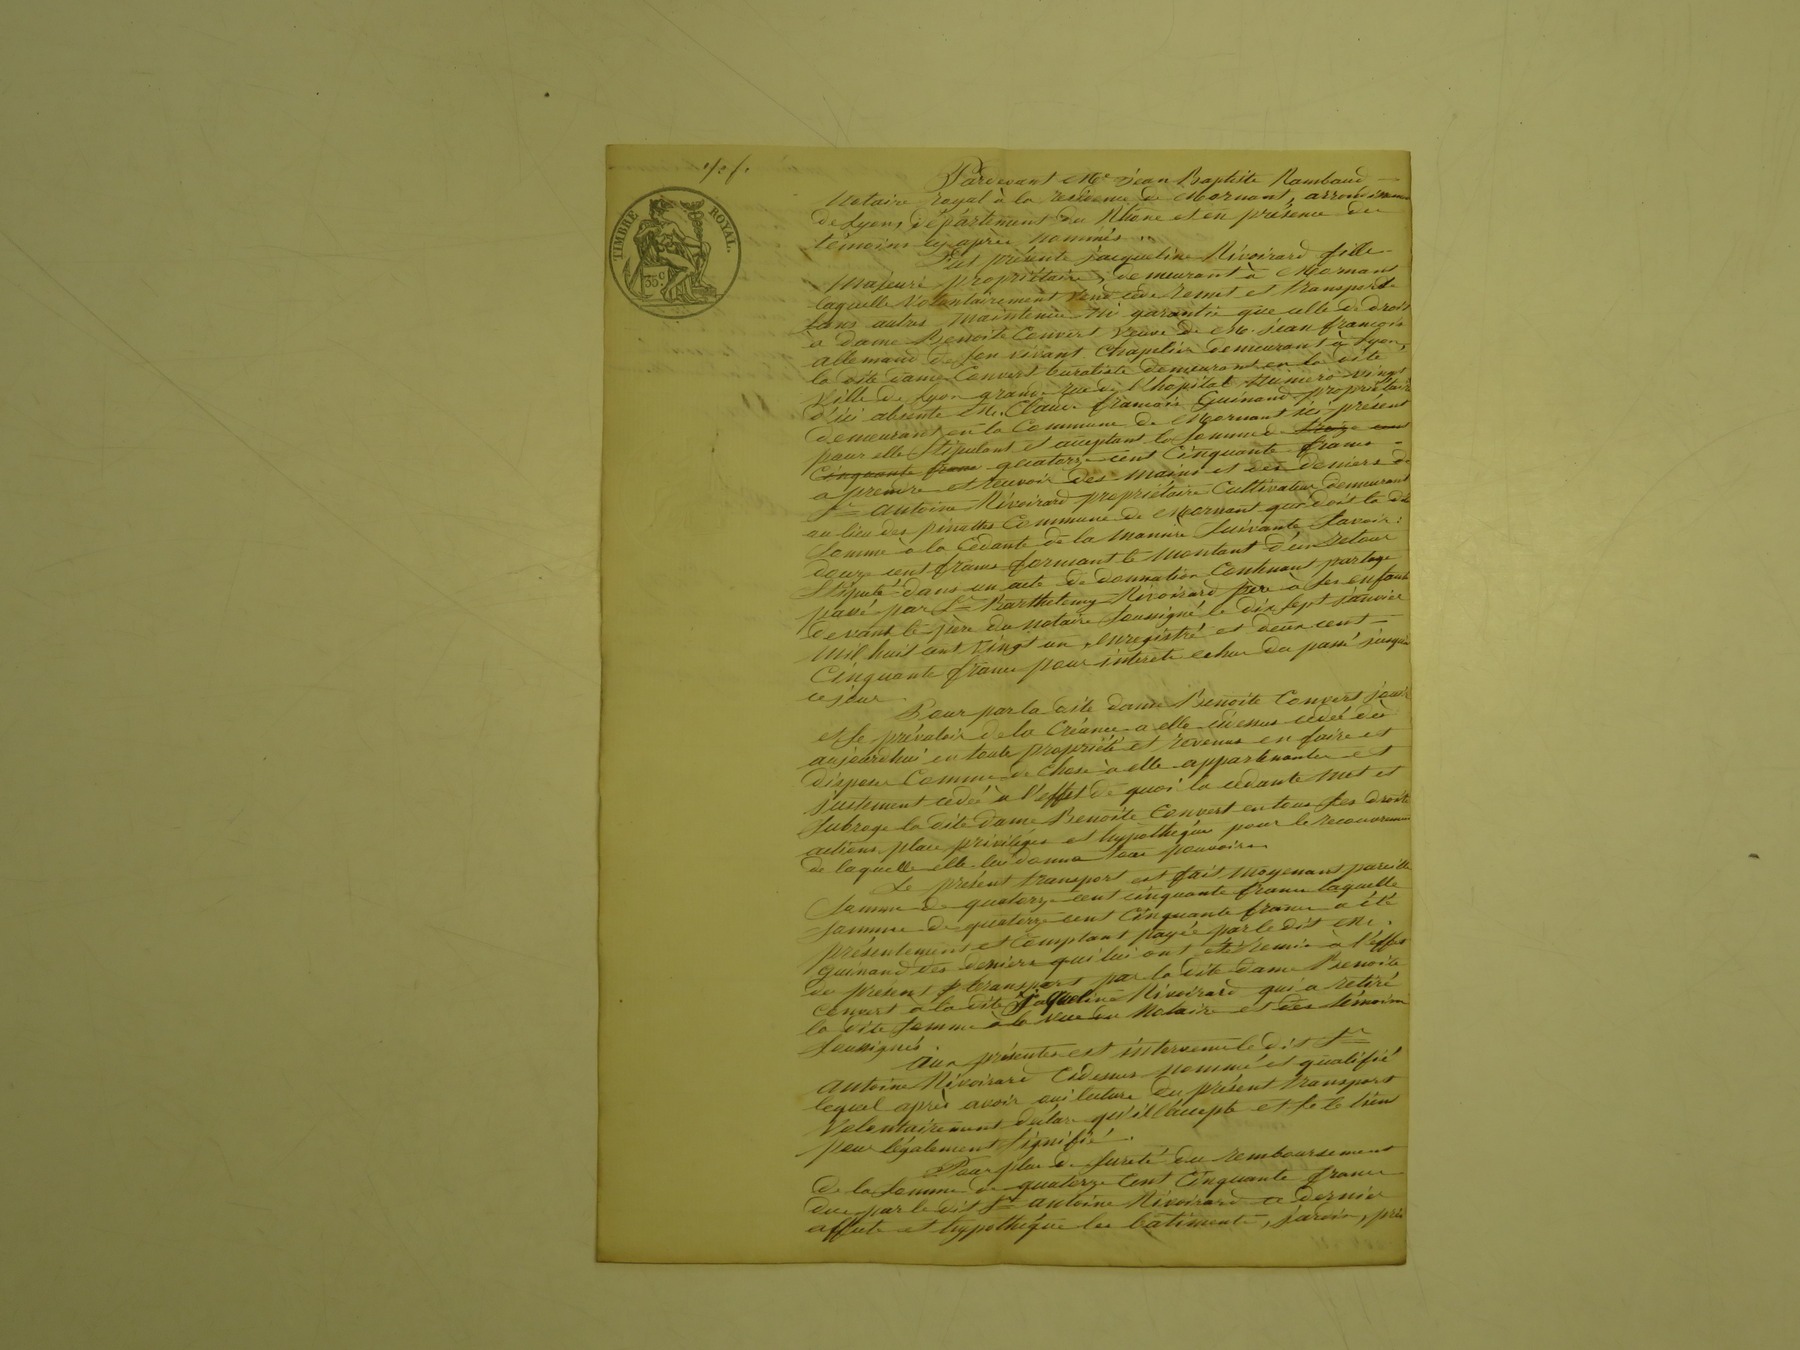 1/2 f.
TIMBRE ROYAL.
35 c
Pardevant Me Jean Baptiste Rambaud
Notaire royal à la résidence de Mornant, arrondissement
de Lyon, département du Rhône et en présence des
témoins cy après nommés.
Fut présente Jacqueline Rivoirard fille
majeure propriétaire, demeurant à Mornant
laquelle volontairement vend cède remet et transporte
sans autres maintenue ni garantie que celle de droit
a dame Benoite Convert veuve de M. Jean françois
allemand de son vivant Chapelier demeurant à Lyon,
la dite dame Convert buraliste demeurant en la dite
ville de Lyon grande rue de l'hopital numéro vingt
d'ici absente M. Claude françois Guinand propriétaire
demeurant en la Commune de Mornant ici présent
pour elle stipulant et acceptant la somme de treize cent
Cinquante franc quatorze cent Cinquante francs
a prendre et recevoir des mains et des deniers de
Sr antoine Rivoirard propriétaire Cultivateur demeurant
au lieu des pinattes Commune de Mornant qui doit la dite
somme à la Cédante de la manière suivante savoir :
douze cent francs formant le montant d'un retour
stipulé dans un acte de donnation Contenant partage
passé par Sr Barthelemy Rivoirard père à ses enfants
devant le père du notaire soussigné le dix sept janvier
mil huit cent vingt un, enregistré et deux cent
Cinquante francs pour intérêts echus du passé jusqu'à
ce jour.
Pour par la dite dame Benoite Convert jouir
et se prévaloir de la Créance a elle cidessus cédée dès
aujourdhui en toute propriété et revenus en faire et
disposer Comme de Chose à elle appartenante et
justement cédée à l'effet de quoi la cédante met et
subroge la dite dame Benoite Convert en tous ses droits
actions, place privilèges et hypothèques pour le recouvrement
de laquelle elle lui donne tous pouvoirs
Le présent transport est fait moyenant pareille
somme de quatorze cent cinquante francs laquelle
somme de quatorze cent Cinquante francs a été
présentement et Comptant payée par le dit M.
guinand des deniers qui lui ont été remis à l'effet
du présent transport par la dite dame Benoite
Convert à la dite Jaqueline Rivoirard qui a retiré
la dite somme à la vue du Notaire et des témoins
soussignés.
Aux présentes est intervenu le dit Sr
antoine Rivoirard Cidessus nommé et qualifié
lequel après avoir oui lecture du présent transport
Volontairement déclare qu'il l'accepte et se le tient
pour légalement signifié.
Pour plus de sureté du remboursement
de la somme de quatorze Cent Cinquante francs
due par le dit Sr antoine Rivoirard ce dernier
affecte et hypothéque les batiments, jardin, prés